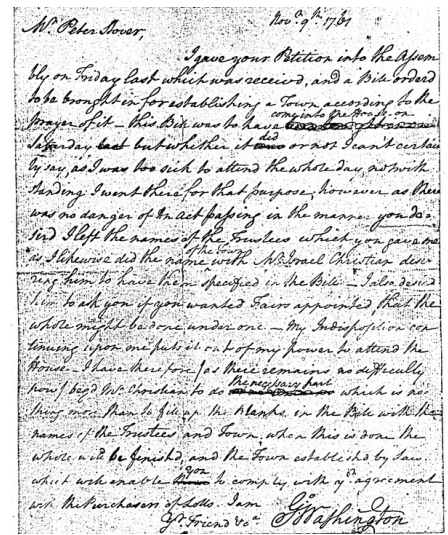 Novr. 9th. 1761
Mr. Peter Stover,
I gave your Petition into the Assem
bly on Friday last which was receivd, and a Bill orderd
to be brought in for establishing a Town according to the
come into the House on
prayer of it — this Bill was to have
did
Saturday last but whether it or not I cant certain
ly say, as I was too sick to attend the whole day, notwith
standing I went there for that purpose; however as there
was no danger of an act passing in the manner you de=
sird I left the names of the Trustees which you gave me
of the Town
as I likewise did the name with Mr. Israel Christian desir
ing him to have them specified in the Bill — I also desird
him to ask you if you wanted Fairs appointed, that the
whole might be done under one — My Indisposition con
tinuing upon me puts it out of my power to attend the
House — I have therefore (as there remains no difficulty
the necessary part
now) begd Mr. Christian to do which is no=
thing more than to fill up the Blanks in the Bill with the
names of the Trustees, and Town, when this is done the
whole will be finishd, and the Town establishd by Law
you
which will enable to comply with yr. agreement
with the Purchasers of Lotts. I am
Yr. Friend &ca.
Go: Washington